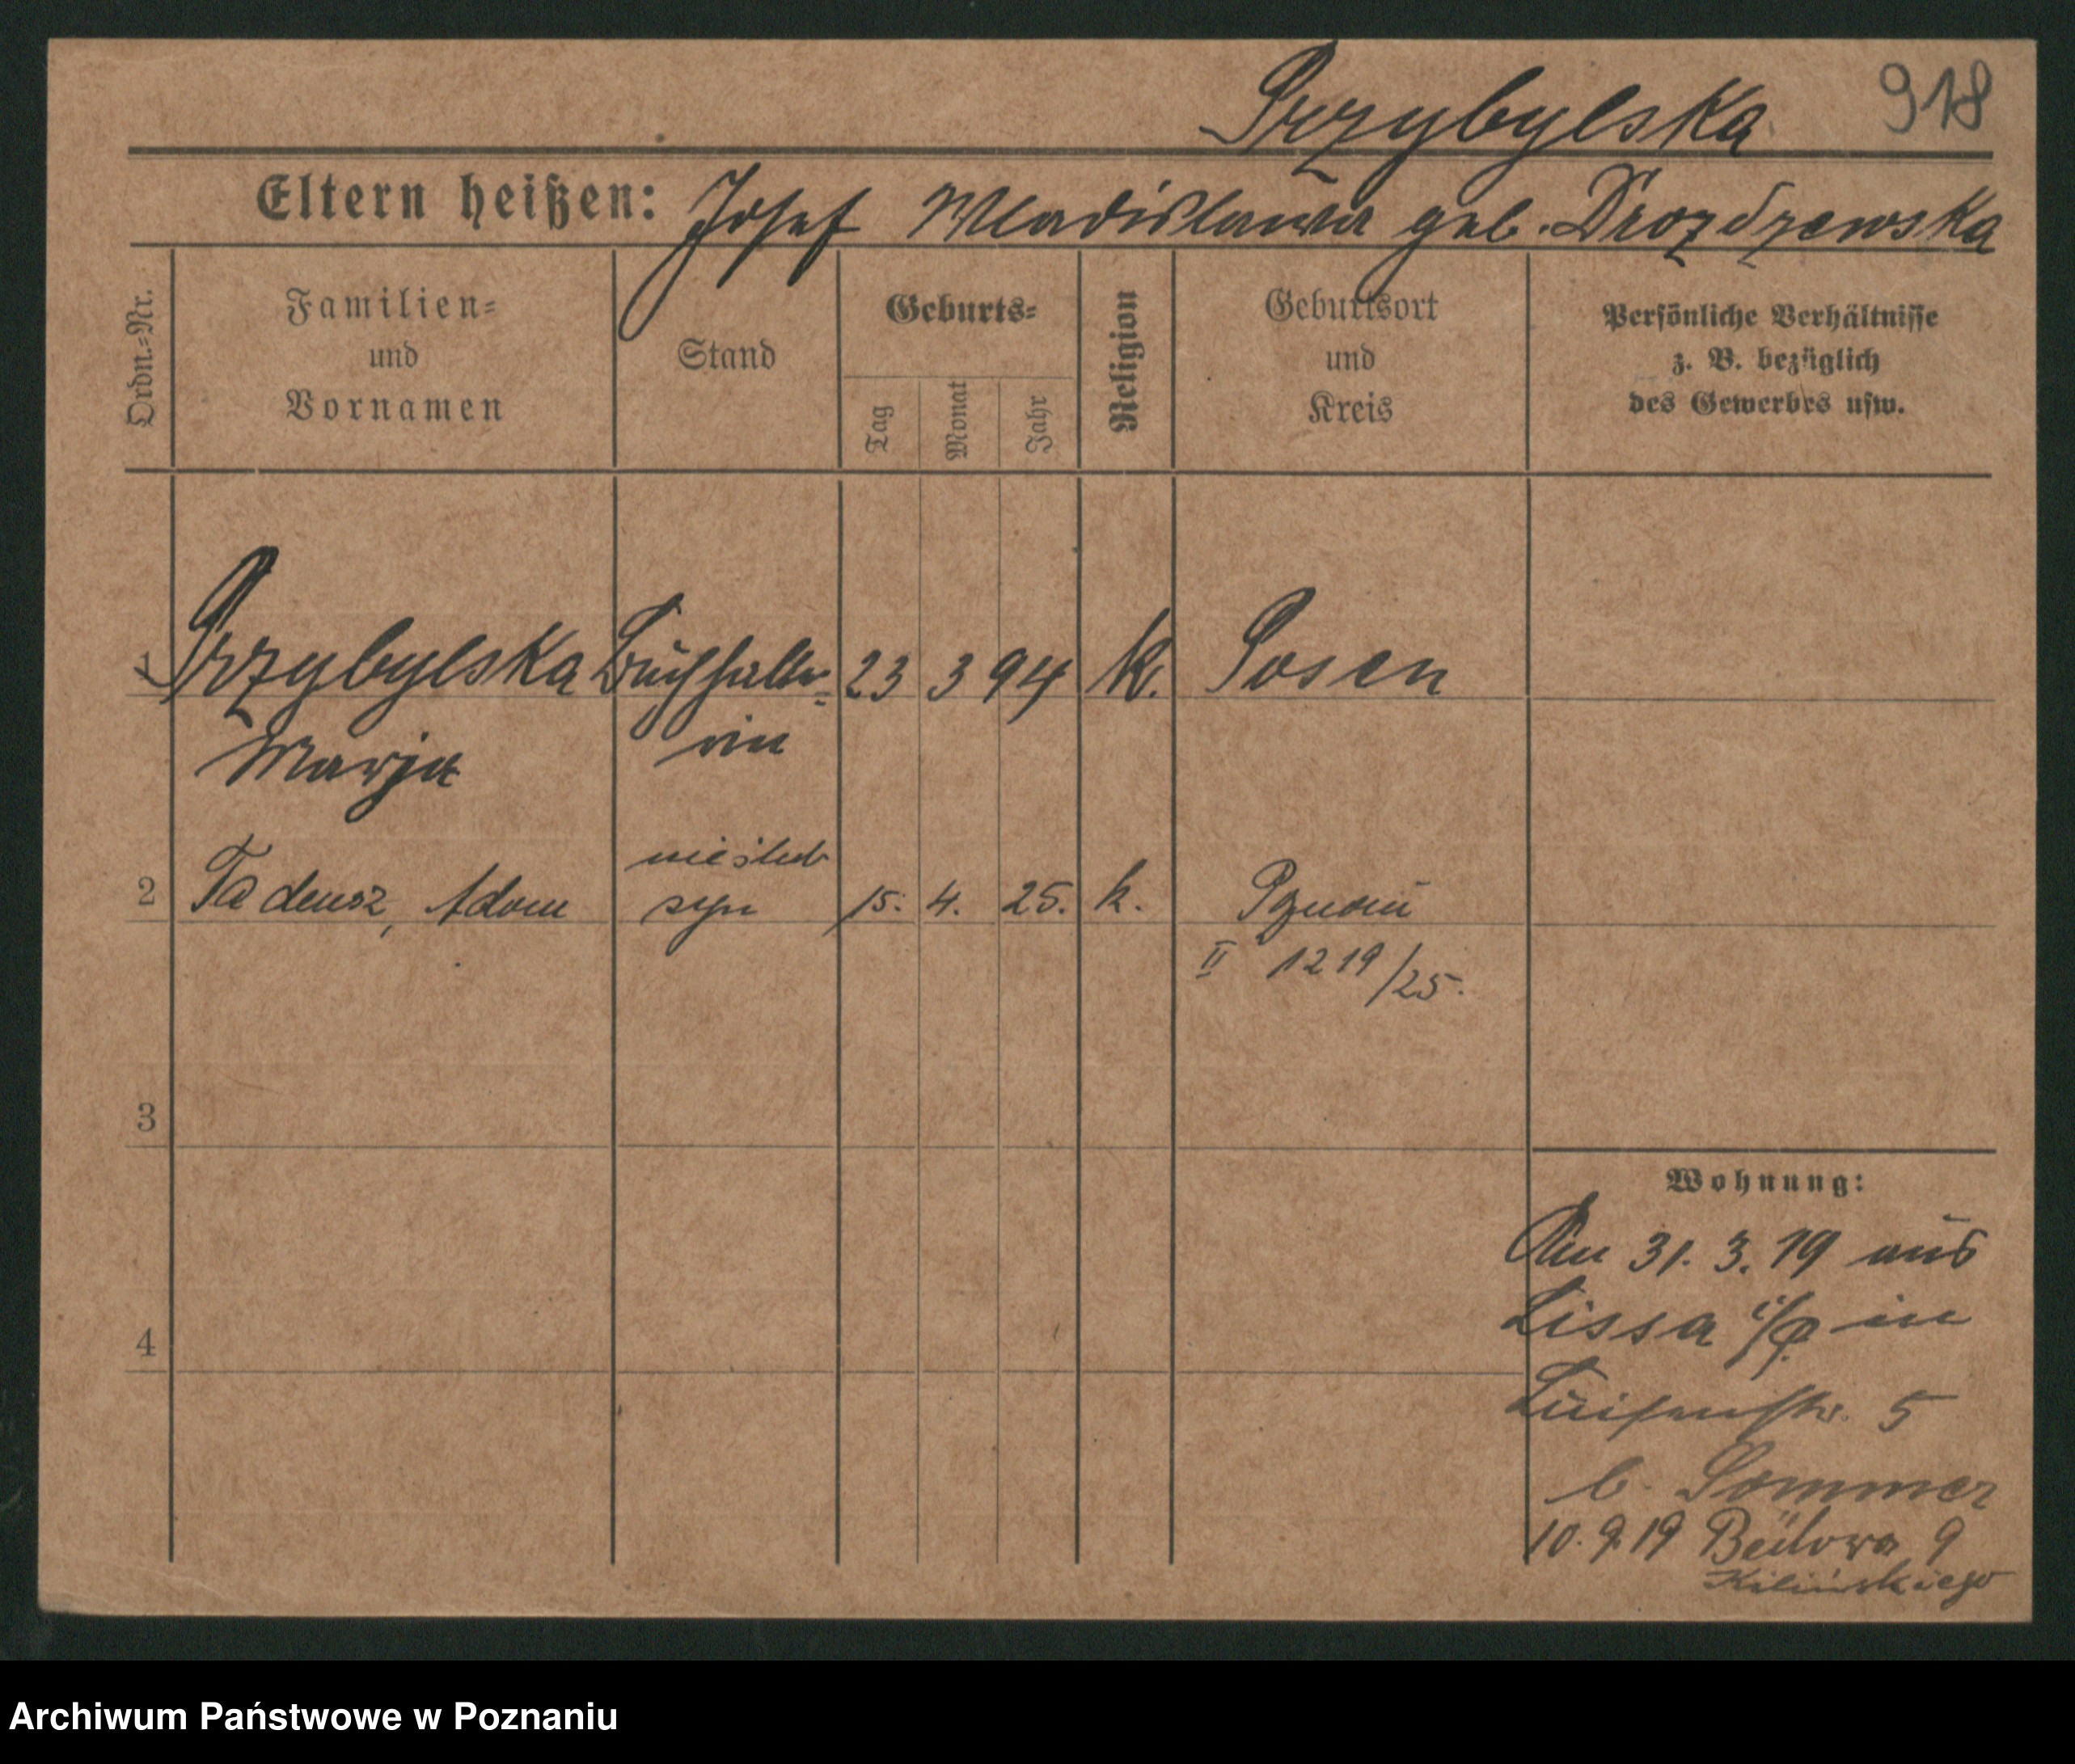 Przybylska 918
Eltern heißen: Josef Wladislawa geb. Drozdzewska
Ordn.-Nr.
Familien-
und
Vornamen
Stand
Geburts-
Tag
Monat
Jahr
Religion
Geburtsort
und
Kreis
Persönliche Verhältnisse
z. B. bezüglich
des Gewerbes usw.
1 Przybylska Buchhalte- 23 3 94 k. Posen
Marja rin
nieślub
2 Tadeusz, Adam syn 15. 4. 25. k. Poznań
II 1219/25.
3
4
Wohnung:
Am 31. 3. 19 aus
Lissa i/P. in
Luisenstr. 5
b. Sommer
10. 9. 19 Bülowa 9
Kilińskiego
Archiwum Państwowe w Poznaniu